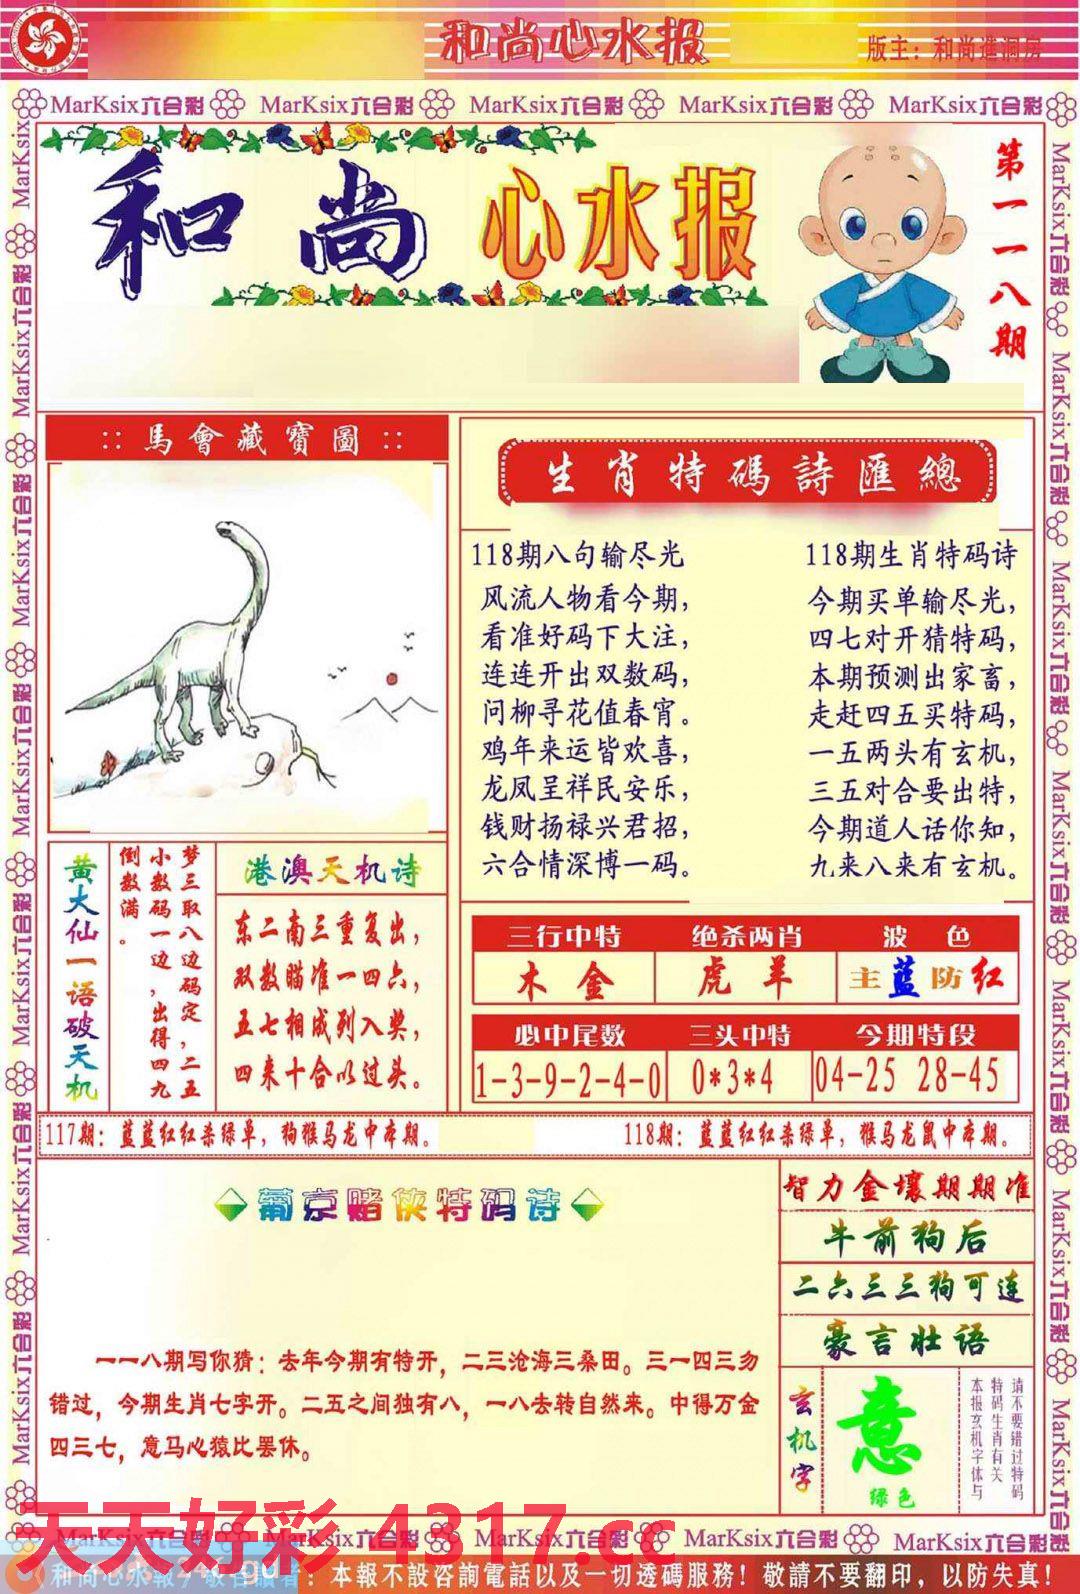 和尚心水报
版主：和尚進洞房
MarKsix六合彩 MarKsix六合彩 MarKsix六合彩 MarKsix六合彩 MarKsix六合彩
和尚心水报
第一一八期
馬會藏寶圖
生肖特碼詩匯總
118期八句输尽光
风流人物看今期，
看准好码下大注，
连连开出双数码，
问柳寻花值春宵。
鸡年来运皆欢喜，
龙凤呈祥民安乐，
钱财扬禄兴君招，
六合情深博一码。
118期生肖特码诗
今期买单输尽光，
四七对开猜特码，
本期预测出家畜，
走赶四五买特码，
一五两头有玄机，
三五对合要出特，
今期道人话你知，
九来八来有玄机。
黄大仙一语破天机
梦三取八边码定，二五
小数码一边，出得四九
倒数满。
港澳天机诗
东二南三重复出，
双数瞄准一四六，
五七相成列入奖，
四来十合以过头。
三行中特 绝杀两肖 波色
木金 虎羊 主蓝防红
必中尾数 三头中特 今期特段
1-3-9-2-4-0 0*3*4 04-25 28-45
117期：蓝蓝红红杀绿单，狗猴马龙中本期。
118期：蓝蓝红红杀绿单，猴马龙鼠中本期。
葡京赌侠特码诗
一一八期写你猜：去年今期有特开，二三沧海三桑田。三一四三勿
错过，今期生肖七字开。二五之间独有八，一八去转自然来。中得万金
四三七，意马心猿比罢休。
智力金壤期期准
牛前狗后
二六三三狗可连
豪言壮语
玄机字
意
绿色
请不要错过特码
特码生肖有关
本报玄机字体与
天天好彩 4317.cc
MarKsix六合彩 MarKsix六合彩 MarKsix六合彩 MarKsix六合彩 MarKsix六合彩
：本報不設咨詢電話以及一切透碼服務！敬請不要翻印，以防失真！